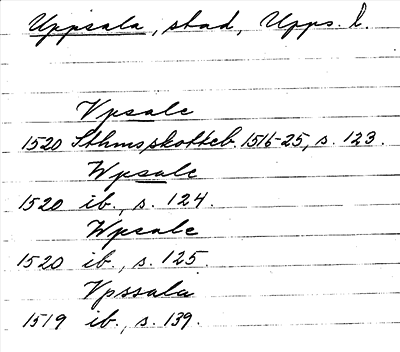 Uppsala, stad, Upps. l.
Vpsale
1520 Sthmsskotteb. 1516-25, s. 123.
Wpsale
1520 ib., s. 124.
Wpsale
1520 ib., s. 125.
Vpssala
1519 ib., s. 139.